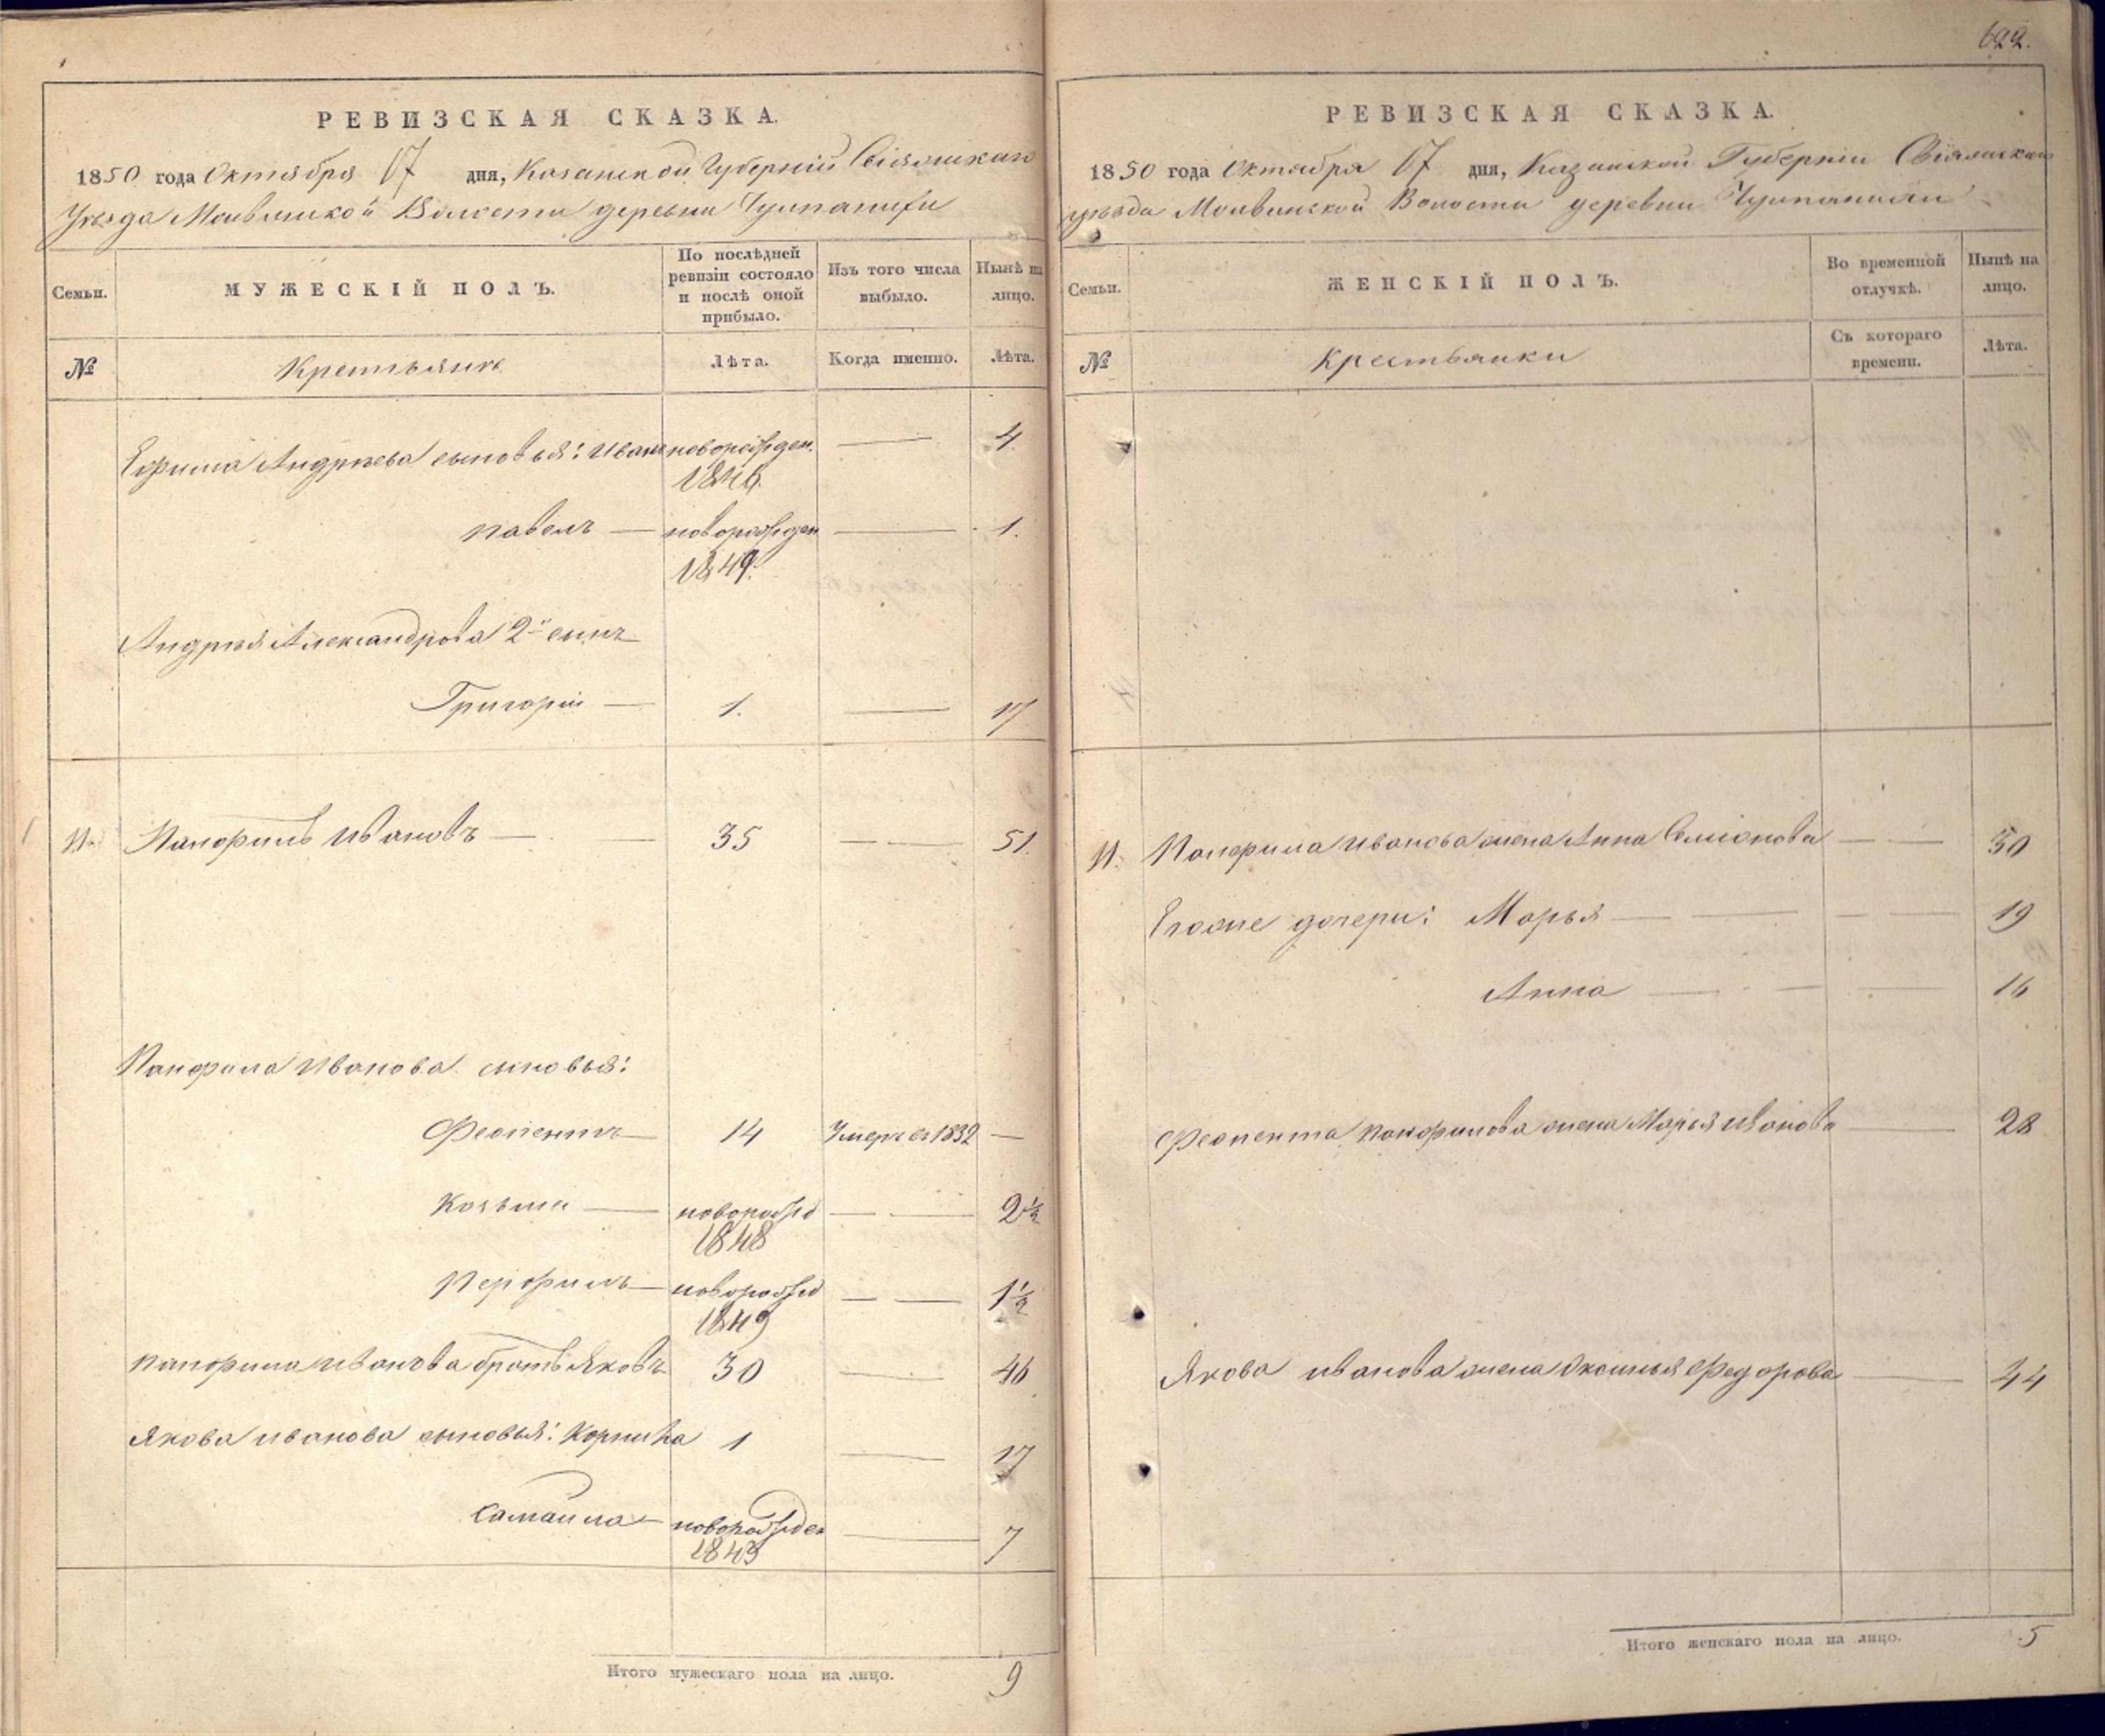 622.
РЕВИЗСКАЯ СКАЗКА.
1850 года Октября 17 дня, Казанской Губерніи Свіяжскаго
Уѣзда Молвинской Волости деревни
Семьи.
МУЖЕСКІЙ ПОЛЪ.
По послѣдней ревизіи состояло и послѣ оной прибыло.
Изъ того числа выбыло.
Нынѣ на лицо.
№
Крестьяне
Лѣта.
Когда именно.
Лѣта.
Ефима Андреева сыновья: Иванъ новорожден. 1846. — 4.
Павелъ — новорожден 1849. — 1.
Андрея Александрова 2й сынъ
Григорій — 1. — 17
11. Панфилъ Ивановъ — 35 — 51.
Панфила Иванова сыновья:
14 Умеръ въ 1832 —
Козьма — новорожд 1848 — 2½
новорожд 1849 — 1½
Панфила Иванова братъ Яковъ 30 — 46
Якова Иванова сыновья: Корнила 1 — 17
Самаила — новорожден 1843 — 7
Итого мужескаго пола на лицо. 9
РЕВИЗСКАЯ СКАЗКА.
1850 года Октября 17 дня, Казанской Губерніи Свіяжскаго
уѣзда Молвинской Волости деревни
Семьи.
ЖЕНСКІЙ ПОЛЪ.
Во временной отлучкѣ.
Нынѣ на лицо.
№
Крестьянки
Съ котораго времени.
Лѣта.
11. Панфила Иванова жена Анна Семионова — 50
Егоже дочери: Марья — 19
Анна — 16
Панфилова жена Марья Иванова — 28
Якова Иванова жена Федорова — 44
Итого женскаго пола на лицо. 5